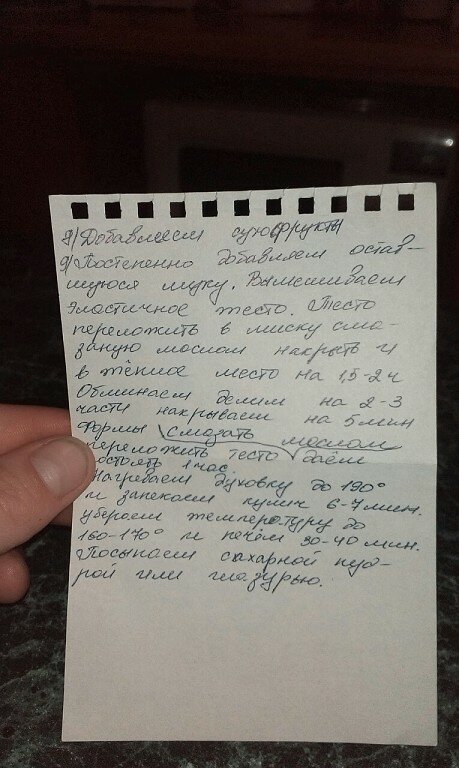 8) Добавляем сухофрукты
9) Постепенно добавляем остав-
шуюся муку. Вымешиваем
эластичное тесто. Тесто
переложить в миску сма-
заную маслом накрыть и
в тёплое место на 1,5-2 ч
Обминаем делим на 2-3
части накрываем на 5 мин
Формы смазать маслом
переложить тесто даём
постоять 1 час.
Нагреваем духовку до 190°
и запекаем кулич 6-7 мин.
убераем температуру до
160-170° и печём 30-40 мин.
Посыпаем сахарной пуд-
рой или глазурью.